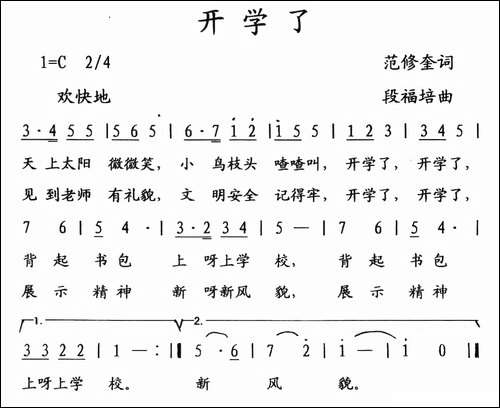 开学了
1=C 2/4 范修奎词
欢快地 段福培曲
3·4 5 5 | 5 6 5 | 6·7 1 2 | 1 5 5 | 1 2 3 | 3 4 5 |
天上太阳 微微笑, 小鸟枝头 喳喳叫, 开学了, 开学了,
见到老师 有礼貌, 文明安全 记得牢, 开学了, 开学了,
7 6 | 5 4· | 3·2 3 4 | 5 — | 7 6 | 5 4· |
背起 书包 上呀上学 校, 背起 书包
展示 精神 新呀新风 貌, 展示 精神
1. 2.
3 3 2 2 | 1 — :‖ 5·6 | 7 2 | 1 — | 1 0 ‖
上呀上学 校。 新 风 貌。